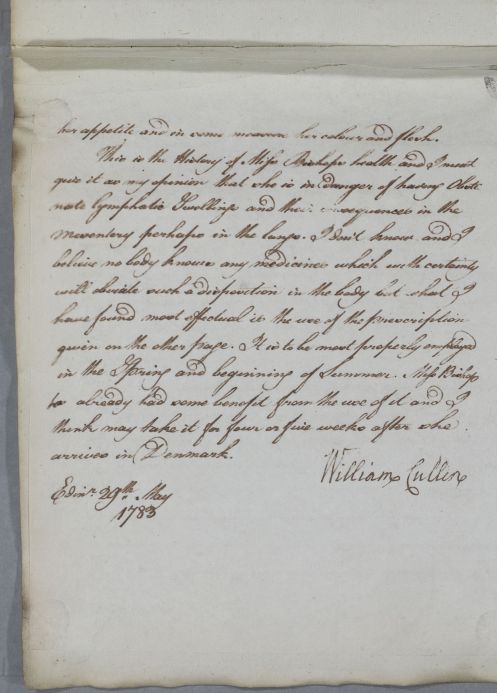 her appetite and in some measure her colour and flesh.
This is the History of Miss Bishops health and I must
give it as my opinion that she is in danger of having Obsti
nate Lymphatic Swellings and their consequences in the
mesentery perhaps in the lungs. I don't know and I
believe no body knows any medicines which with certainty
will obviate such a disposition in the body but what I
have found most effectual is the use of the prescription
given on the other page. It is to be most properly employed
in the Spring and beginning of Summer. Miss Bishop
already had some benefit from the use of it and I
think may take it for four or five weeks after she
arrives in Denmark.
William Cullen
Edinr. 29th. May
1783